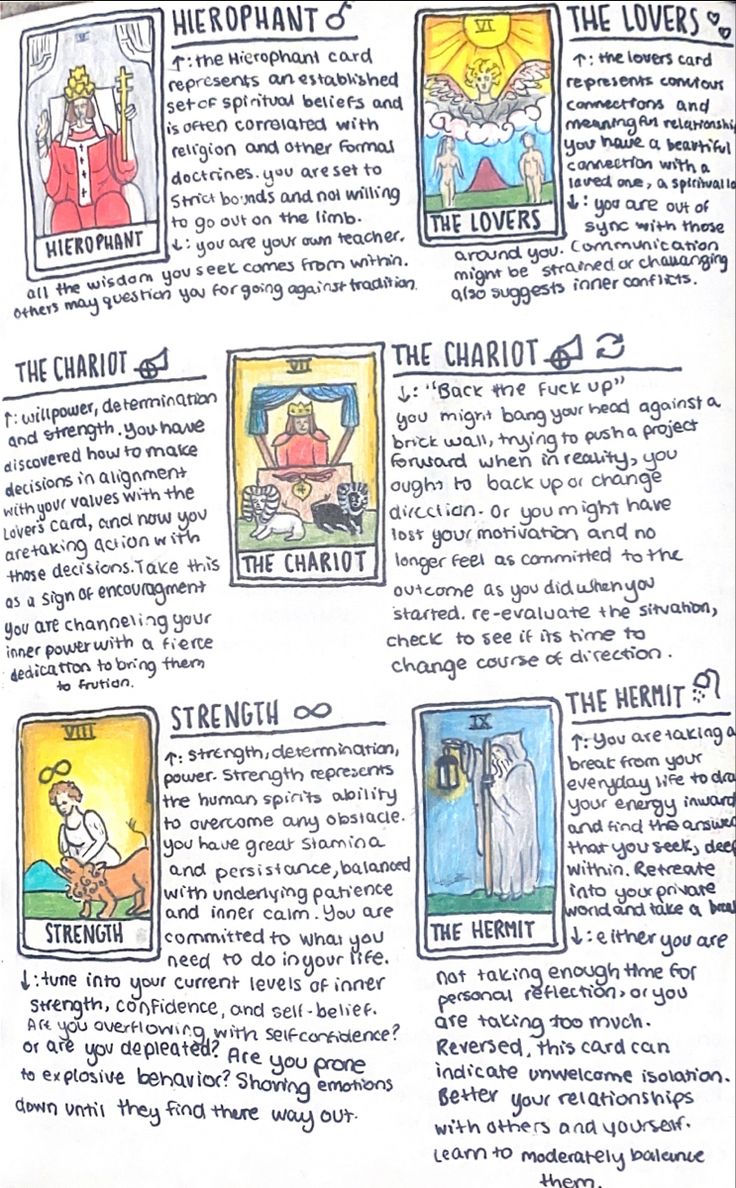 V
HIEROPHANT
HIEROPHANT
↑: the Hierophant card
represents an established
set of spiritual beliefs and
is often correlated with
religion and other formal
doctrines. you are set to
strict bounds and not willing
to go out on the limb.
↓: you are your own teacher.
all the wisdom you seek comes from within.
others may question you for going against tradition.
VI
THE LOVERS
THE LOVERS
↑: the lovers card
represents
connections and
meaningful relationship
you have a beautiful
connection with a
loved one, a spiritual lo
↓: you are out of
sync with those
around you. Communication
might be strained or
also suggests inner conflicts.
THE CHARIOT
↑: willpower, determination
and strength. you have
discovered how to make
decisions in alignment
with your values with the
Lovers card, and now you
are taking action with
those decisions. Take this
as a sign of encouragment
you are channeling your
inner power with a fierce
dedication to bring them
to frution.
VII
THE CHARIOT
THE CHARIOT
↓: "Back the fuck up"
you might bang your head against a
brick wall, trying to push a project
forward when in reality, you
ought to back up or change
direction. Or you might have
lost your motivation and no
longer feel as committed to the
outcome as you did when you
started. re-evaluate the situation,
check to see if its time to
change course of direction.
VIII
∞
STRENGTH
STRENGTH ∞
↑: strength, determination,
power. Strength represents
the human spirits ability
to overcome any obstacle.
you have great stamina
and persistance, balanced
with underlying patience
and inner calm. You are
committed to what you
need to do in your life.
↓: tune into your current levels of inner
strength, confidence, and self-belief.
Are you overflowing with self confidence?
or are you depleated? Are you prone
to explosive behavior? Shoving emotions
down until they find there way out.
IX
THE HERMIT
THE HERMIT
↑: You are taking a
break from your
everyday life to dra
your energy inward
and find the answe
that you seek, deep
within. Retreate
into your private
world and take a brea
↓: either you are
not taking enough time for
personal reflection, or you
are taking too much.
Reversed, this card can
indicate unwelcome isolation.
Better your relationships
with others and yourself.
Learn to moderately balance
them.